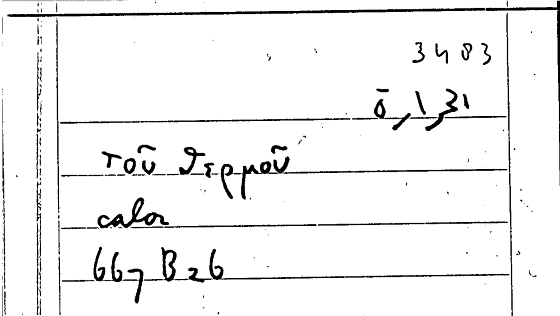 3483
ō, 1, 31
τοῦ θερμοῦ
calor
667 B 26